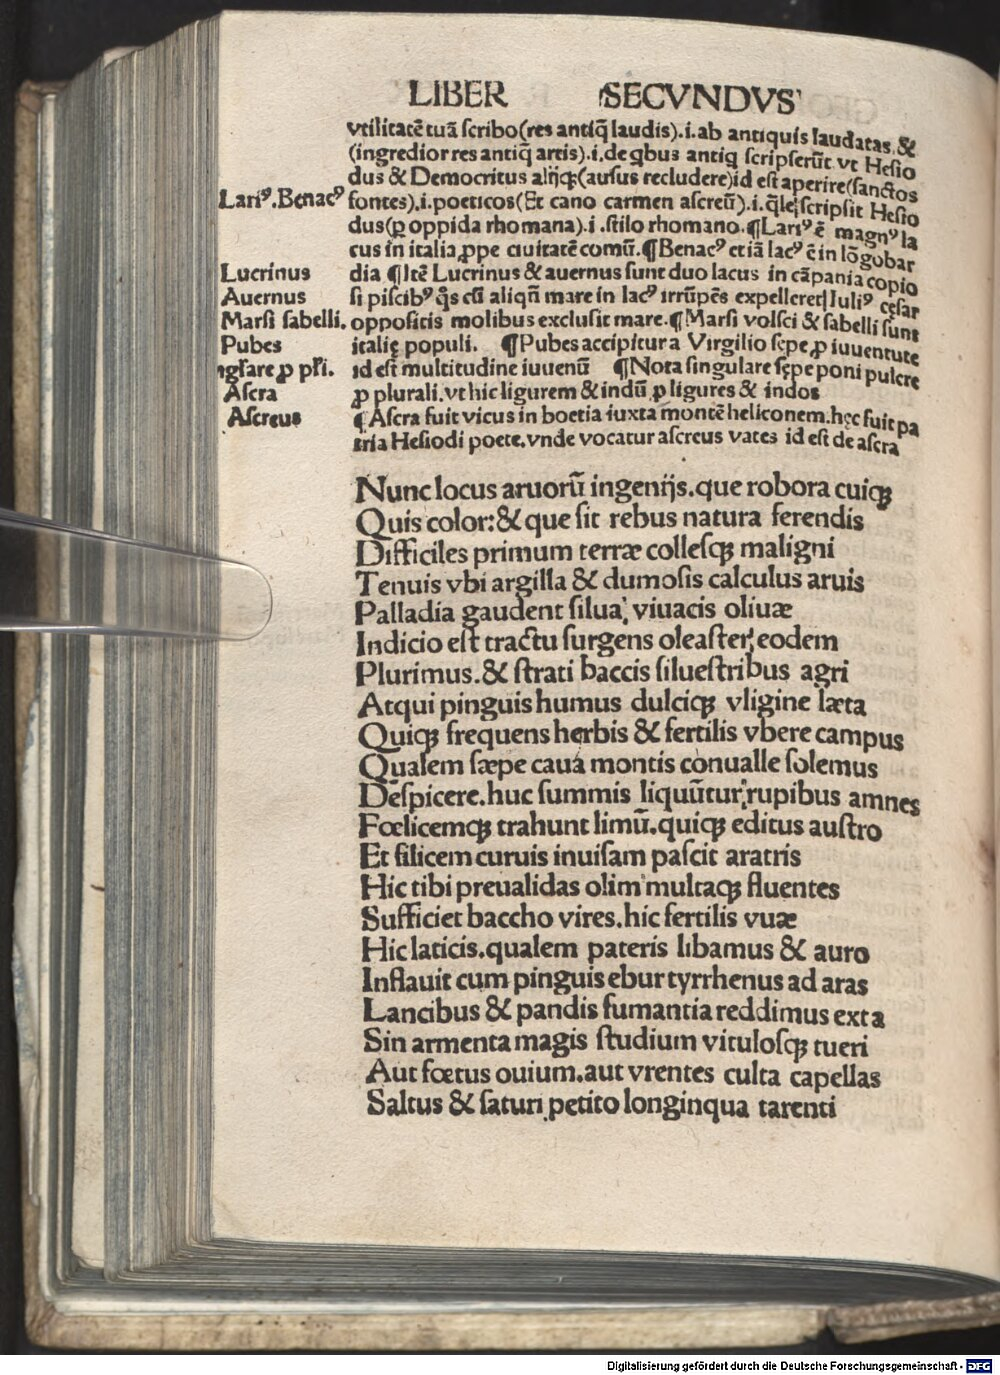 LIBER SECVNDVS
vtilitatē tuā ſcribo (res antiq̄ laudis).i.ab antiquis laudatas &
(ingredior res antiq̄ artis).i.de qͥbus antiq ſcripſerūt. vt Heſio
dus & Democritus alijqꝫ (auſus recludere) id eſt aperire (ſanctos
Lariꝰ. Benacꝰ fontes).i.poeticos (Et cano carmen aſcreū).i.q̄le ſcripſit Heſio
dus (ꝑ oppida rhomana).i.ſtilo rhomano. ¶ Lariꝰ ē magnꝰ la
cus in italia ꝓpe ciuitatē comū. ¶ Benacꝰ etiā lacꝰ ē in lōgobar
Lucrinus dia ¶ Itē Lucrinus & auernus ſunt duo lacus in cāpania copio
Auernus ſi piſcibꝰ q̄s cū aliqn̄ mare in lacꝰ irrūpēs expelleret Iuliꝰ cęſar
Marſi ſabelli. oppoſitis molibus excluſit mare. ¶ Marſi volſci & ſabelli ſunt
Pubes italię populi. ¶ Pubes accipitur a Virgilio ſępe ꝓ iuuentute
ꝓ pl̄i. id eſt multitudine iuuenū ¶ Nota ſingulare ſępe poni pulcre
Aſcra ꝓ plurali. vt hic ligurem & indū ꝓ ligures & indos
Aſcreus ¶ Aſcra fuit vicus in boetia iuxta montē heliconem. hęc fuit pa
tria Heſiodi poete. vnde vocatur aſcreus vates id eſt de aſcra
Nunc locus aruorū ingenijs. que robora cuiqꝫ
Quis color: & que ſit rebus natura ferendis
Difficiles primum terræ colleſqꝫ maligni
Tenuis vbi argilla & dumoſis calculus aruis
Palladia gaudent ſilua viuacis oliuæ
Indicio eſt tractu ſurgens oleaſter eodem
Plurimus. & ſtrati baccis ſilueſtribus agri
At qui pinguis humus dulciqꝫ vligine læta
Quiqꝫ frequens herbis & fertilis vbere campus
Qualem ſæpe caua montis conualle ſolemus
Deſpicere. huc ſummis liquūtur rupibus amnes
Fœlicemqꝫ trahunt limū. quiqꝫ editus auſtro
Et filicem curuis inuiſam paſcit aratris
Hic tibi preualidas olim multaqꝫ fluentes
Sufficiet baccho vires. hic fertilis vuæ
Hic laticis. qualem pateris libamus & auro
Inflauit cum pinguis ebur tyrrhenus ad aras
Lancibus & pandis fumantia reddimus exta
Sin armenta magis ſtudium vituloſqꝫ tueri
Aut fœtus ouium. aut vrentes culta capellas
Saltus & ſaturi petito longinqua tarenti
Digitalisierung gefördert durch die Deutsche Forschungsgemeinschaft - DFG